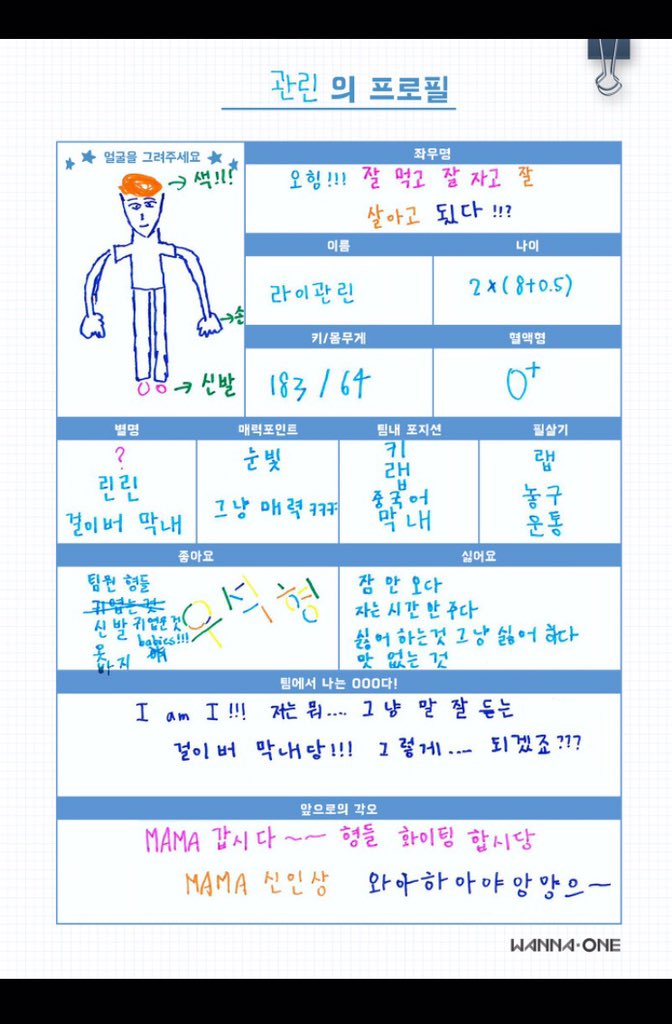 관린의 프로필
얼굴을 그려주세요
색!!!
손
신발
좌우명
오힘!!! 잘 먹고 잘 자고 잘
살아고 됬다 !!?
이름
나이
라이관린
2x(8+0.5)
키/몸무게
혈액형
183 / 64
O+
별명
매력포인트
팀내 포지션
필살기
?
린린
걸이버 막내
눈빛
그냥 매력 ㅋㅋㅋ
키
랩
중국어
막내
랩
농구
운통
좋아요
싫어요
팀원 형들
귀엽는 것
신발 귀업운것
babies!!!
옷
바지
우석형
잠 안 오다
자는 시간 안 주다
싫어 하는것 그냥 싫어 하다
맛 없는 것
팀에서 나는 OOO다!
I am I !!! 저는 뭐.... 그냥 말 잘 듣는
걸이버 막내당!!! 그렇게.... 되겠죠???
앞으로의 각오
MAMA 갑시다~~ 형들 화이팅 합시당
MAMA 신인상 와아하아야앙먕으~
WANNA·ONE